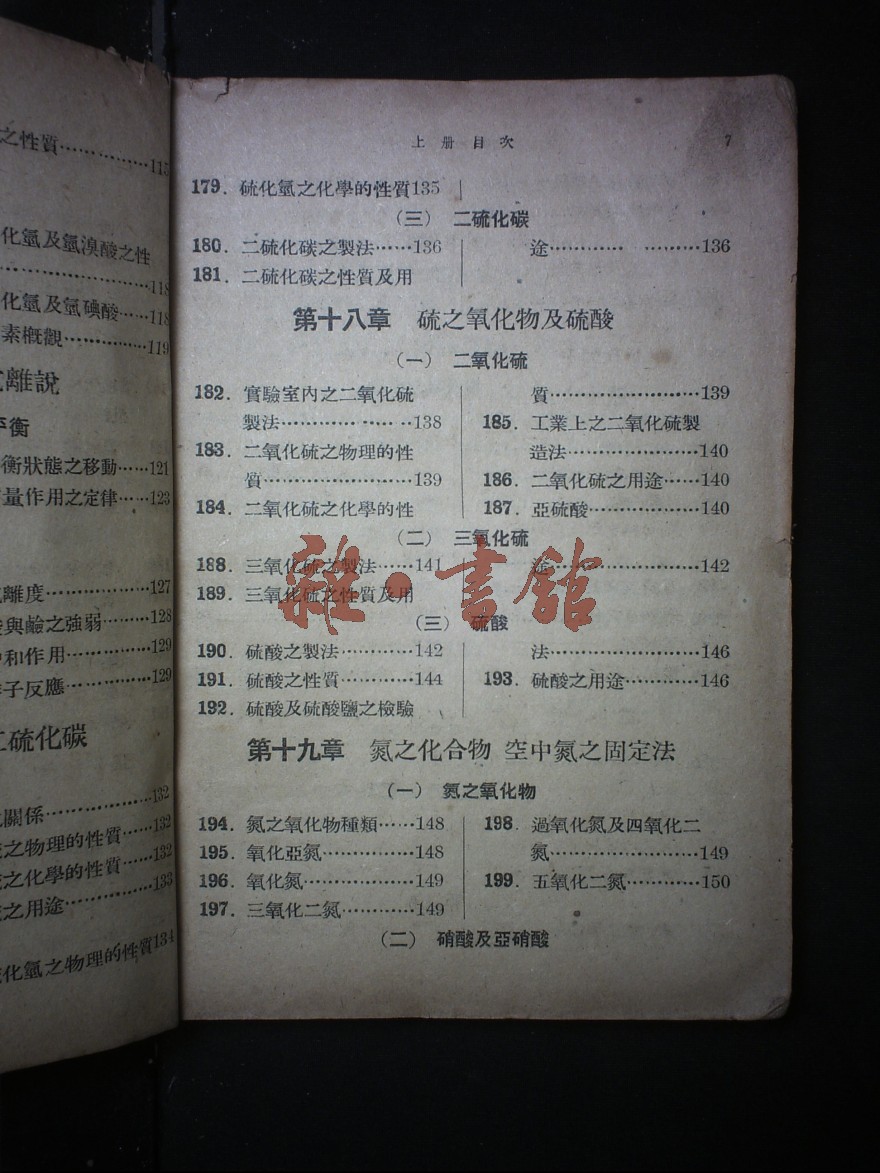 之性質……………115
化氫及氫溴酸之性
……………118
化氫及氫碘酸……118
素概觀……………119
離說
平衡
衡狀態之移動……121
量作用之定律……123
離度……………127
與鹼之強弱………128
和作用……………129
子反應……………129
二硫化碳
關係……………132
之物理的性質……132
之化學的性質……132
之用途……………133
化氫之物理的性質134
上册目次 7
179. 硫化氫之化學的性質135
(三) 二硫化碳
180. 二硫化碳之製法……136
181. 二硫化碳之性質及用
途…………… …………136
第十八章 硫之氧化物及硫酸
(一) 二氧化硫
182. 實驗室內之二氧化硫
製法……………………138
183. 二氧化硫之物理的性
質………………………139
184. 二氧化硫之化學的性
質………………………139
185. 工業上之二氧化硫製
造法……………………140
186. 二氧化硫之用途……140
187. 亞硫酸………………140
(二) 三氧化硫
188. 三氧化硫之製法……141
189. 三氧化硫之性質及用
途………………………142
(三) 硫酸
190. 硫酸之製法…………142
191. 硫酸之性質…………144
192. 硫酸及硫酸鹽之檢驗
法………………………146
193. 硫酸之用途…………146
第十九章 氮之化合物 空中氮之固定法
(一) 氮之氧化物
194. 氮之氧化物種類……148
195. 氧化亞氮……………148
196. 氧化氮………………149
197. 三氧化二氮…………149
198. 過氧化氮及四氧化二
氮………………………149
199. 五氧化二氮…………150
(二) 硝酸及亞硝酸
雜·書館